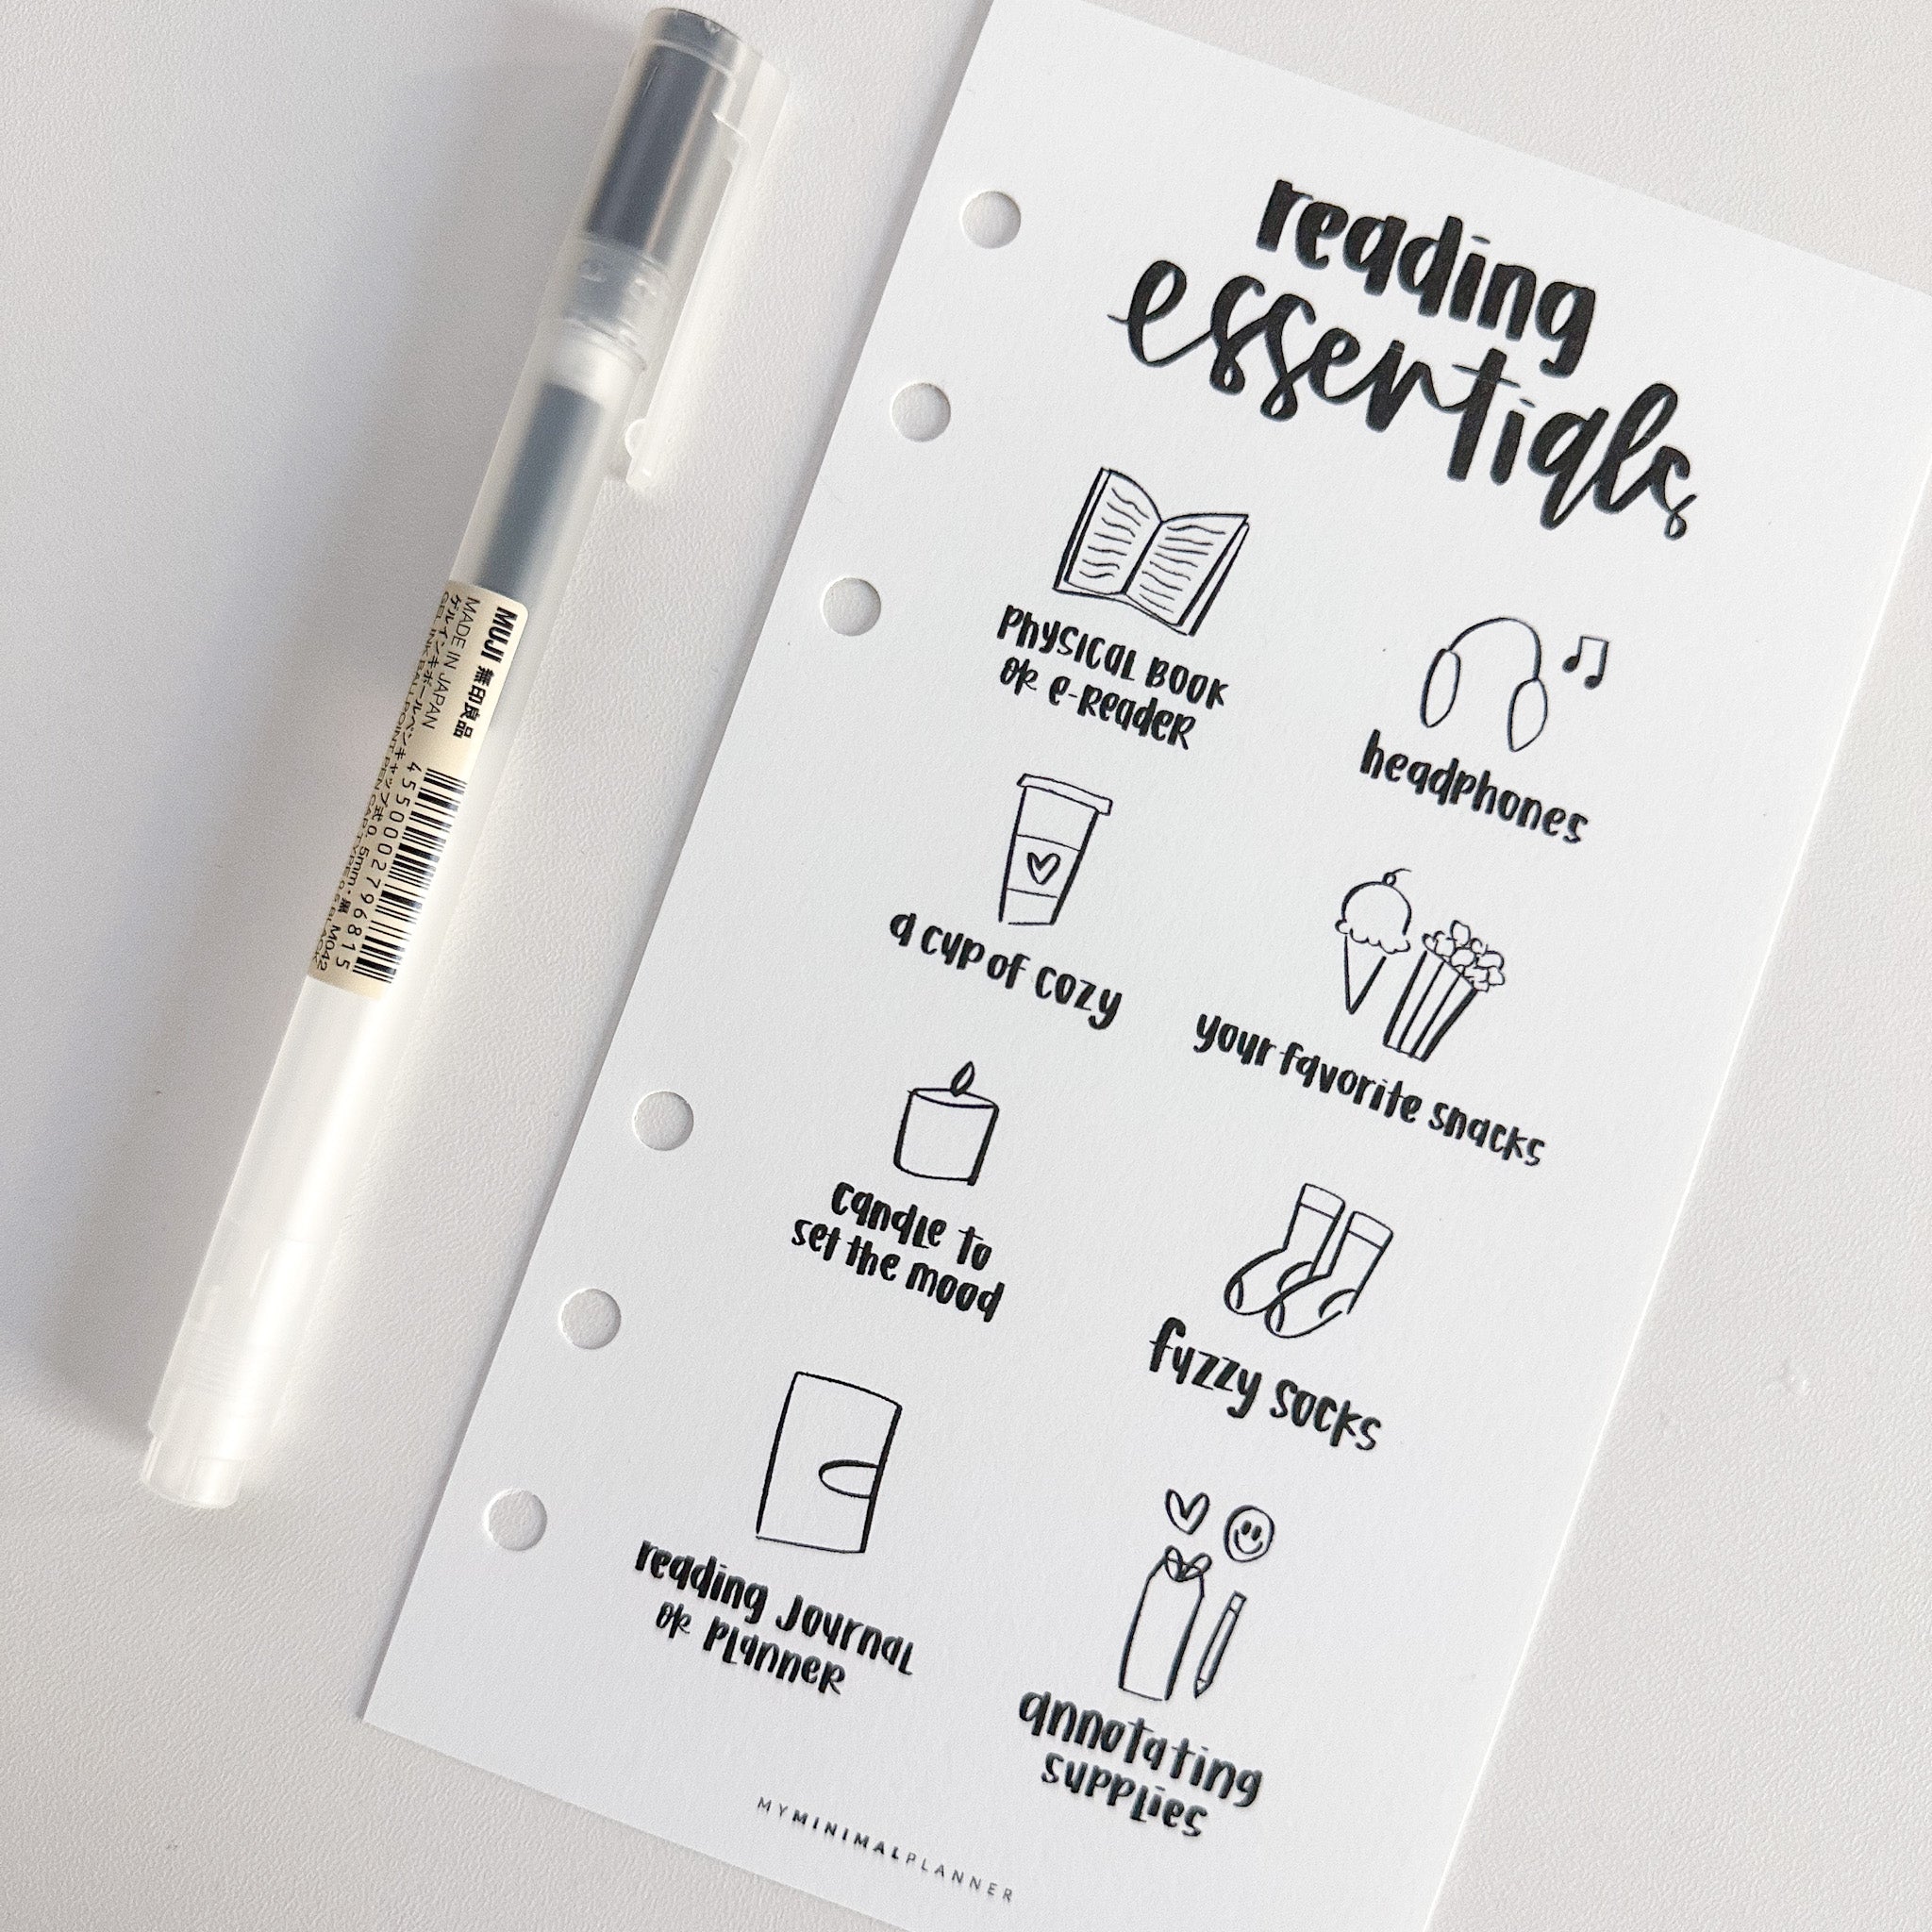 MUJI 無印良品
MADE IN JAPAN
ゲルインキボールペンキャップ式0.5mm・黒 M042
GEL INK BALLPOINT PEN CAP TYPE 0.5 BLACK
4550002796815
reading
essentials
PHYSICAL BOOK
OR e-ReadeR
headphones
a cup of cozy
your favorite snacks
candle to
set the mood
fuzzy socks
reading Journal
OR PLanneR
annotating
supplies
MYMINIMALPLANNER